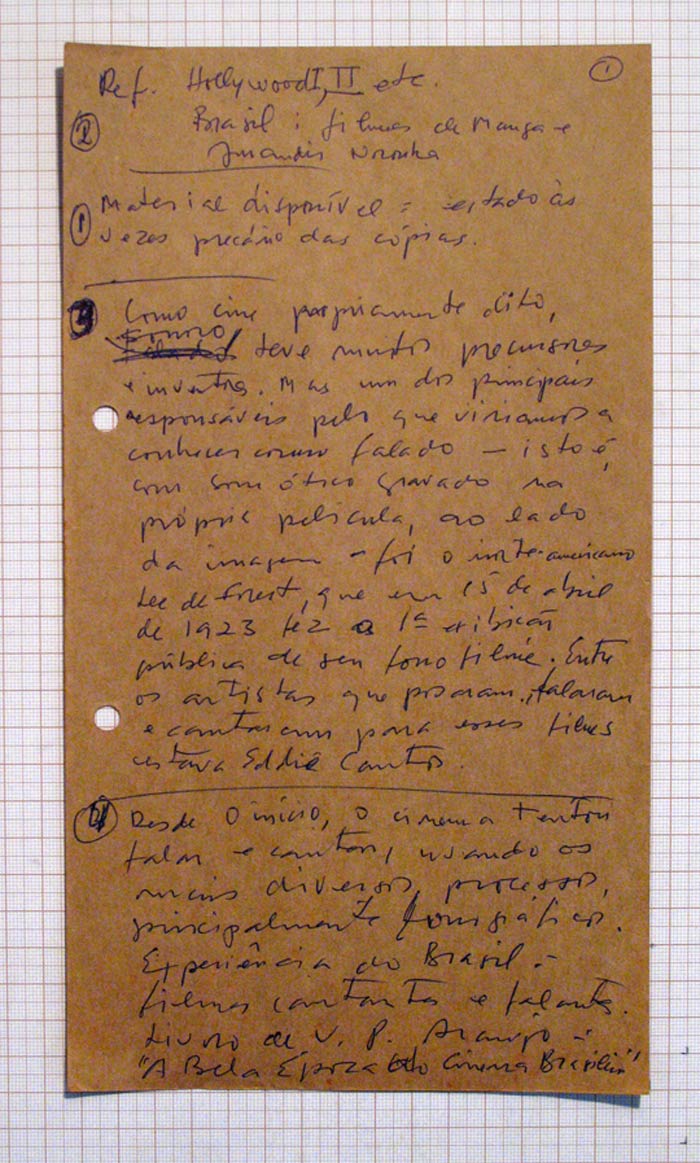 Ref. Hollywood I, II etc. ①
② Brasil: filmes de Manga e
Jurandir Noronha
① Material disponível = estado às
vezes precário das cópias.
③ Como cine propriamente dito,
sonoro teve muitos precursores
e inventores. Mas um dos principais
responsáveis pelo que viríamos a
conhecer como falado — isto é,
com som ótico gravado na
própria película, ao lado
da imagem - foi o norte-americano
Lee de Forest, que em 15 de abril
de 1923 fez a 1ª exibição
pública de seu fonofilme. Entre
os artistas que posaram, falaram
e cantaram para esses filmes
estava Eddie Cantor.
④ Desde o início, o cinema tentou
falar e cantar, usando os
mais diversos processos,
principalmente fonográficos.
Experiência do Brasil -
filmes cantantes e falantes.
Livro de V. P. Araújo -
"A Bela Época do Cinema Brasileiro"